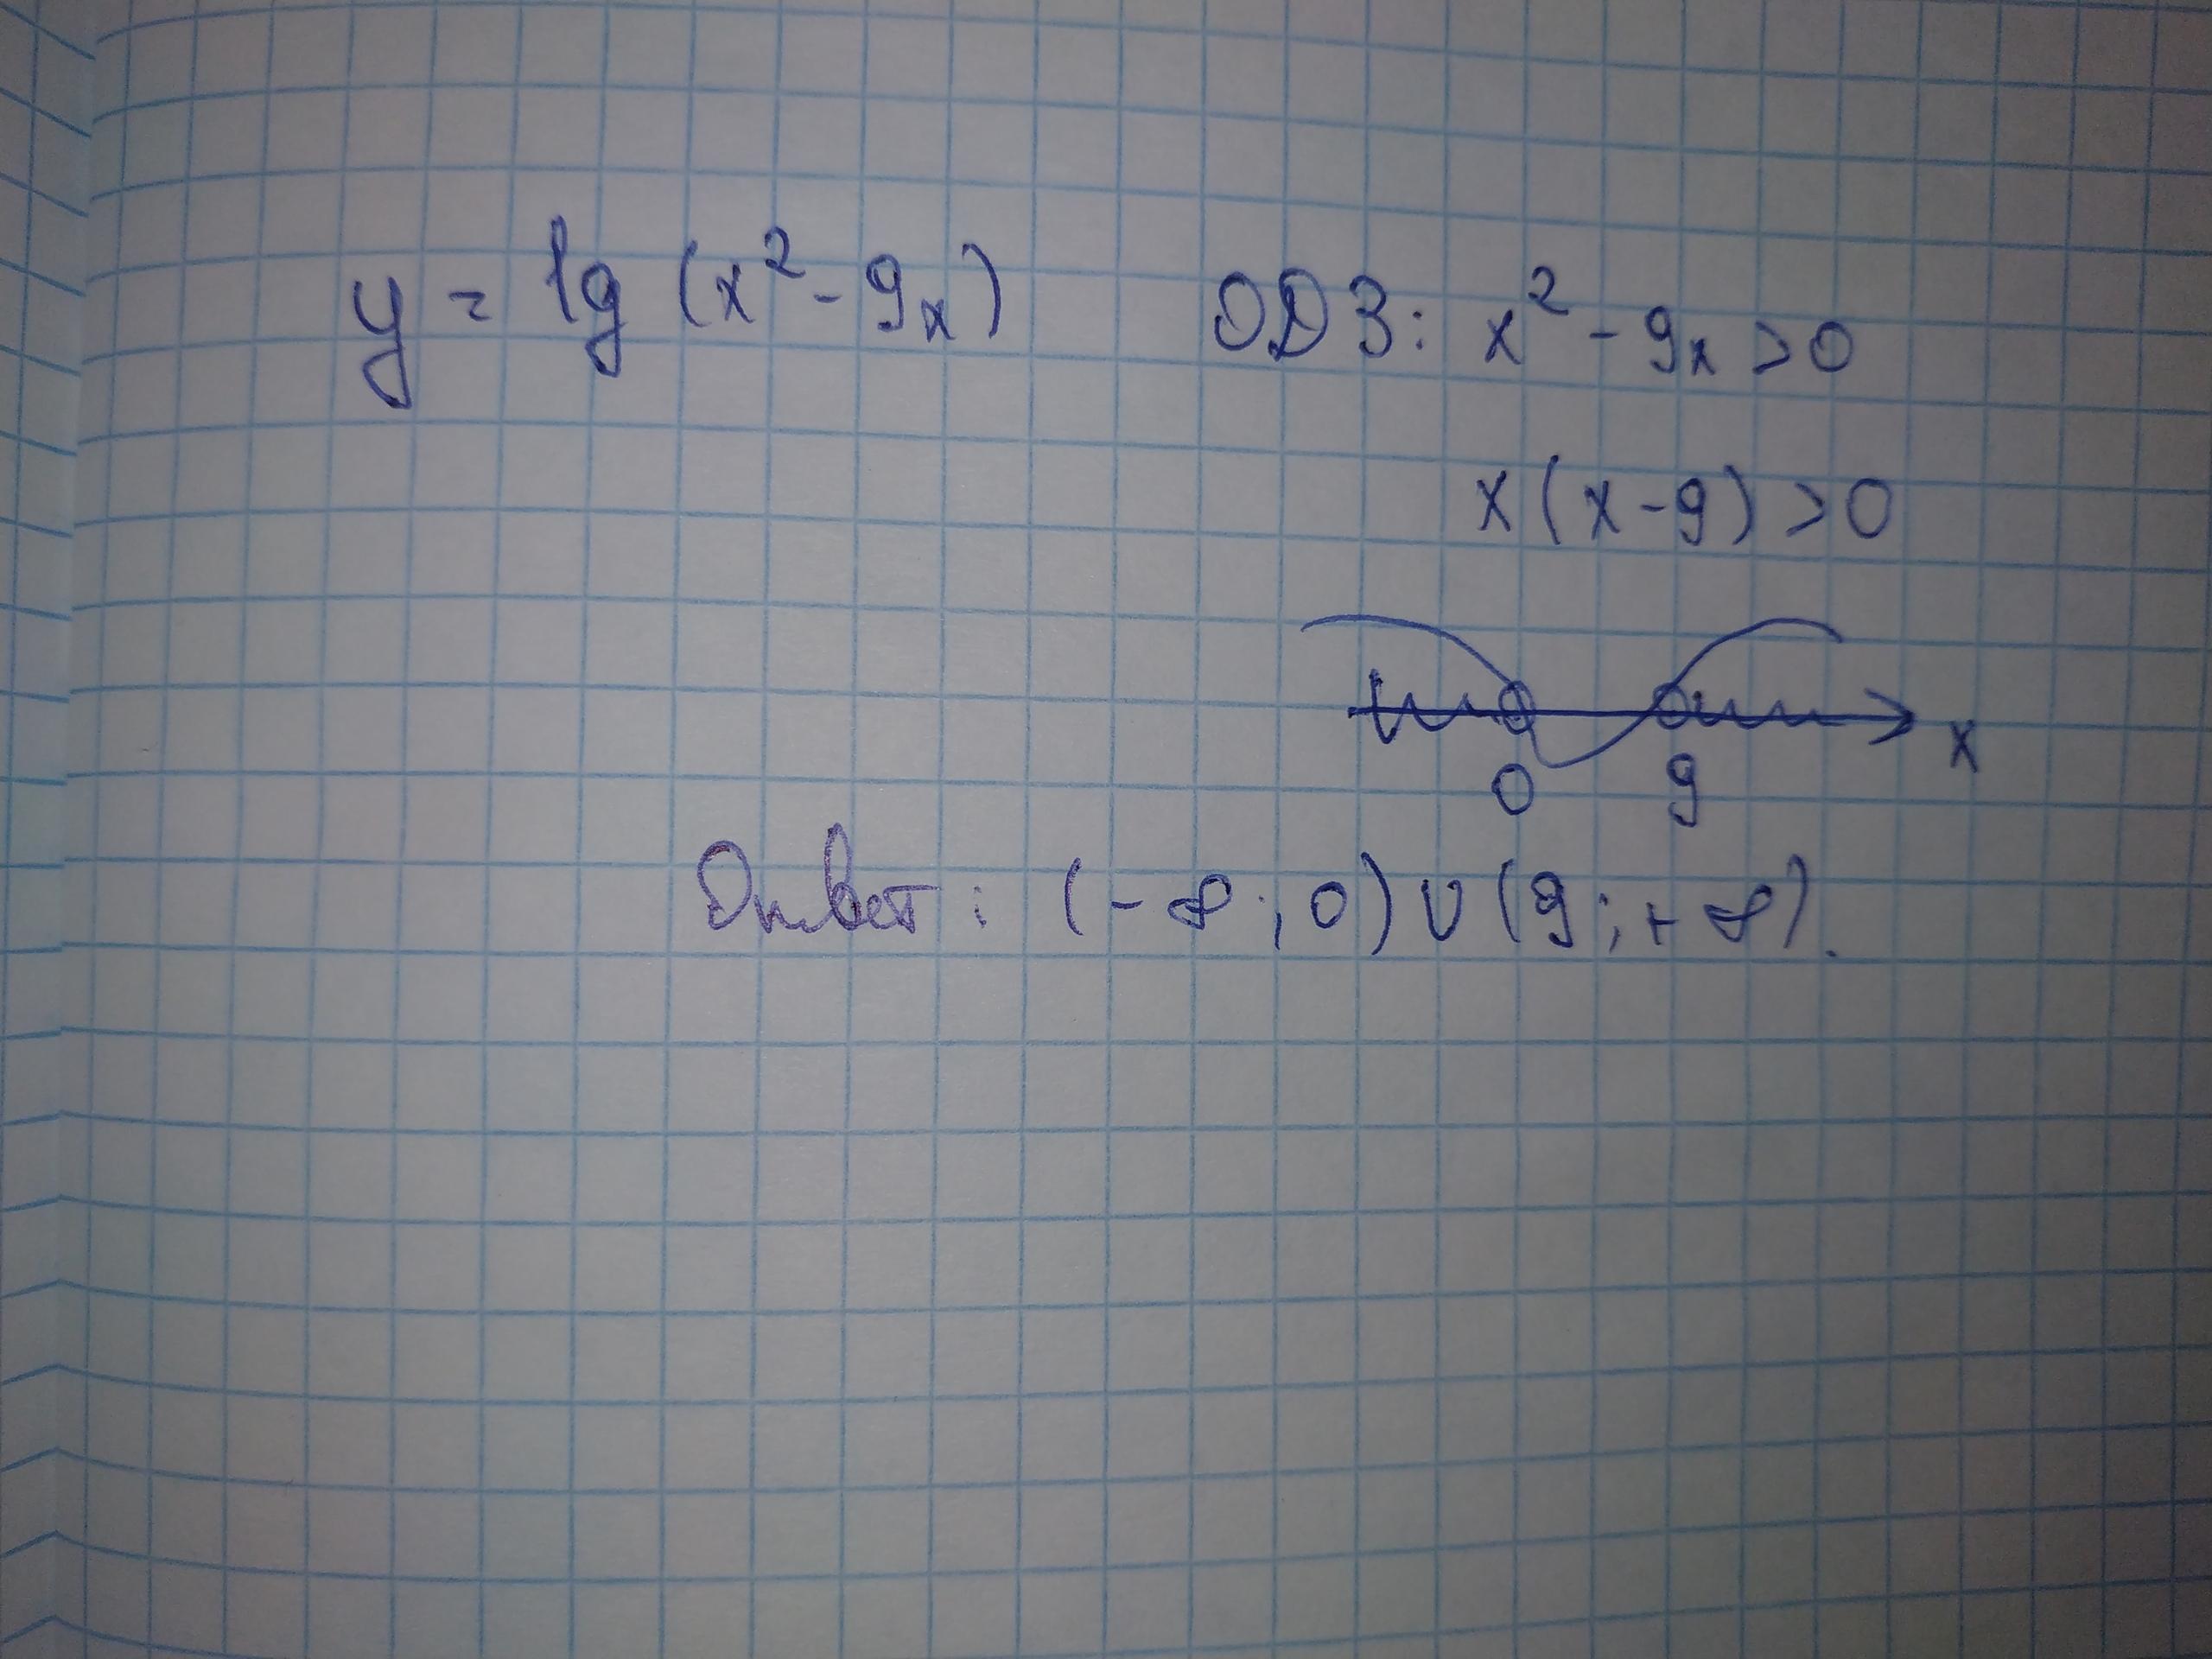 y = lg (x² - 9x) ОДЗ: x² - 9x > 0
x (x - 9) > 0
x
0 9
Ответ: (- ∞ ; 0) ∪ (9 ; + ∞).